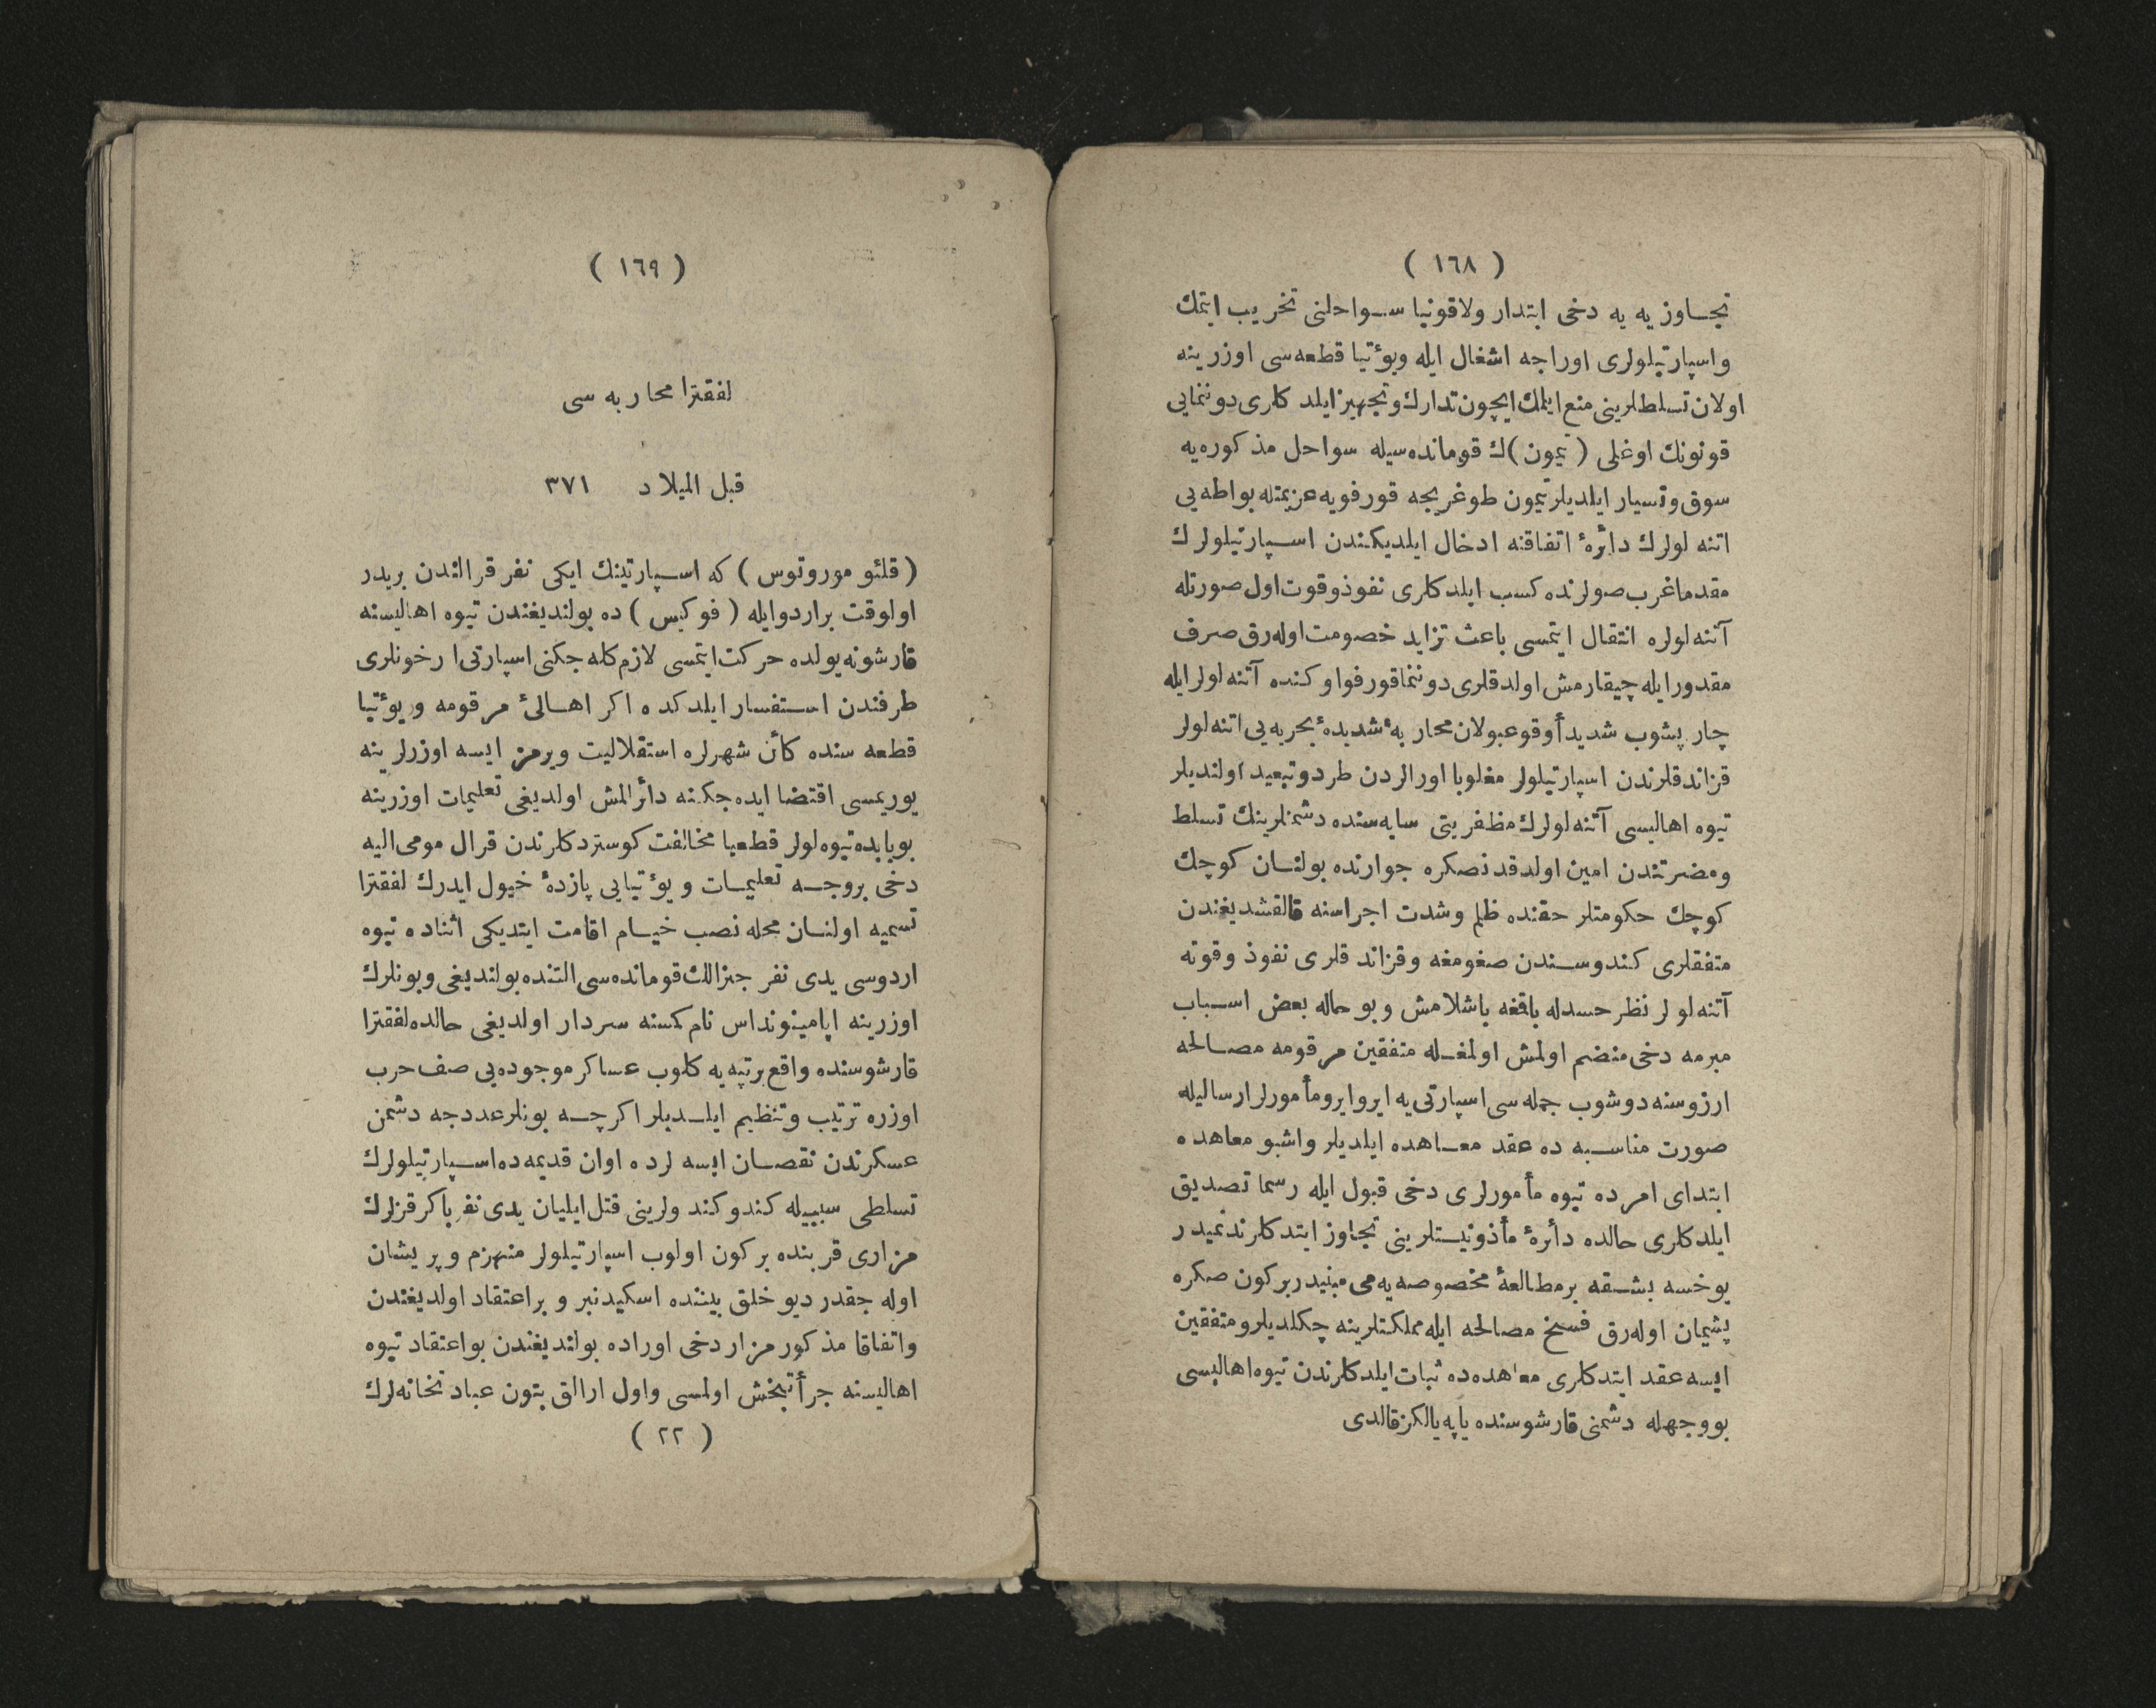 ( ١٦٨ )
تجاوزيه يه دخى ابتدار ولاقونيا سواحلنى تخريب ايتمك
واسپارتيلولرى اوراجه اشغال ايله وبوٴتيا قطعه‌سى اوزرينه
اولان تسلطلرينى منع ايلمك ايچون تدارك وتجهيز ايلدكلرى دونمايى
قونونك اوغلى ( تيمون )ك قومانده‌سيله سواحل مذكوره‌يه
سوق وتسيار ايلديلر تيمون طوغريجه قورفويه عزيمتله بو اطه‌يى
اتنه لولرك دائرهٔ اتفاقنه ادخال ايلديكندن اسپارتيلولرك
مقدما غرب صولرنده كسب ايلدكلرى نفوذ وقوت اول صورتله
آتنه‌لولره انتقال ايتمسى باعث تزايد خصومت اوله‌رق صرف
مقدور ايله چيقارمش اولدقلرى دوننما قورفو اوكنده آتنه لولر ايله
چارپشوب شديداً وقوعبولان محاربهٔ شديدهٔ بحريه‌يى اتنه لولر
قزاندقلرندن اسپارتيلولر مغلوبا اورالردن طرد وتبعيد اولنديلر
تيوه اهاليسى آتنه لولرك مظفريتى سايه‌سنده دشمنلرينك تسلط
ومضرتندن امين اولدقدنصكره جوارنده بولنان كوچك
كوچك حكومتلر حقنده ظلم وشدت اجراسنه قالقشديغندن
متفقلرى كندوسندن صغومغه وقزاندقلرى نفوذ وقوته
آتنه لولر نظر حسدله باقغه باشلامش وبو حاله بعض اسباب
مبرمه دخى منضم اولمش اولمغله متفقين مرقومه مصالحه
ارزوسنه دوشوب جمله‌سى اسپارتى‌يه ايرو ايرو مأمورلر ارساليله
صورت مناسبه ده عقد معاهده ايلديلر واشبو معاهده
ابتداى امرده تيوه مأمورلرى دخى قبول ايله رسما تصديق
ايلدكلرى حالده دائرهٔ مأذونيتلرينى تجاوز ايتدكلرندنميدر
يوخسه بشقه برمطالعهٔ مخصوصه‌يه مى مبنيدر بركون صكره
پشيمان اوله‌رق فسخ مصالحه ايله مملكتلرينه چكلديلر ومتفقين
ايسه عقد ايتدكلرى معاهده‌ده ثبات ايلدكلرندن تيوه اهاليسى
بووجهله دشمنى قارشوسنده ياپه يالكز قالدى
( ١٦٩ )
لفقترا محاربه سى
قبل الميلاد ٣٧١
( قلئو موروتوس ) كه اسپارتينك ايكى نفر قرالندن بريدر
اولوقت براردو ايله ( فوكيس ) ده بولنديغندن تيوه اهاليسنه
قارشو نه يولده حركت ايتمسى لازم كله‌جكنى اسپارتى ارخونلرى
طرفندن استفسار ايلدكده اكر اهالئ مرقومه وبوٴتيا
قطعه سنده كائن شهرلره استقلاليت ويرمز ايسه اوزرلرينه
يوريمسى اقتضا ايده‌جكنه دائر المش اولديغى تعليمات اوزرينه
بوبابده تيوه لولر قطعيا مخالفت كوستردكلرندن قرال مومى اليه
دخى بروجه تعليمات وبوٴتيايى پازدهٔ خيول ايدرك لفقترا
تسميه اولنان محله نصب خيام اقامت ايتديكى اثناده تيوه
اردوسى يدى نفر جنرالك قومانده‌سى التنده بولنديغى وبونلرك
اوزرينه اپامينونداس نام كمسنه سردار اولديغى حالده لفقترا
قارشوسنده واقع برتپه يه كلوب عساكر موجوده‌يى صف حرب
اوزره ترتيب وتنظيم ايلديلر اكرچه بونلر عددجه دشمن
عسكرندن نقصان ايسه لرده اوان قديمه ده اسپارتيلولرك
تسلطى سببيله كندو كندولرينى قتل ايليان يدى نفر باكر قزلرك
مزارى قربنده بركون اولوب اسپارتيلولر منهزم وپريشان
اوله جقدر ديو خلق بيننده اسكيدنبر و براعتقاد اولديغندن
واتفاقا مذكور مزار دخى اوراده بولنديغندن بو اعتقاد تيوه
اهاليسنه جرأتبخش اولمسى واول ارالق بتون عبادتخانه لرك
( ٢٢ )